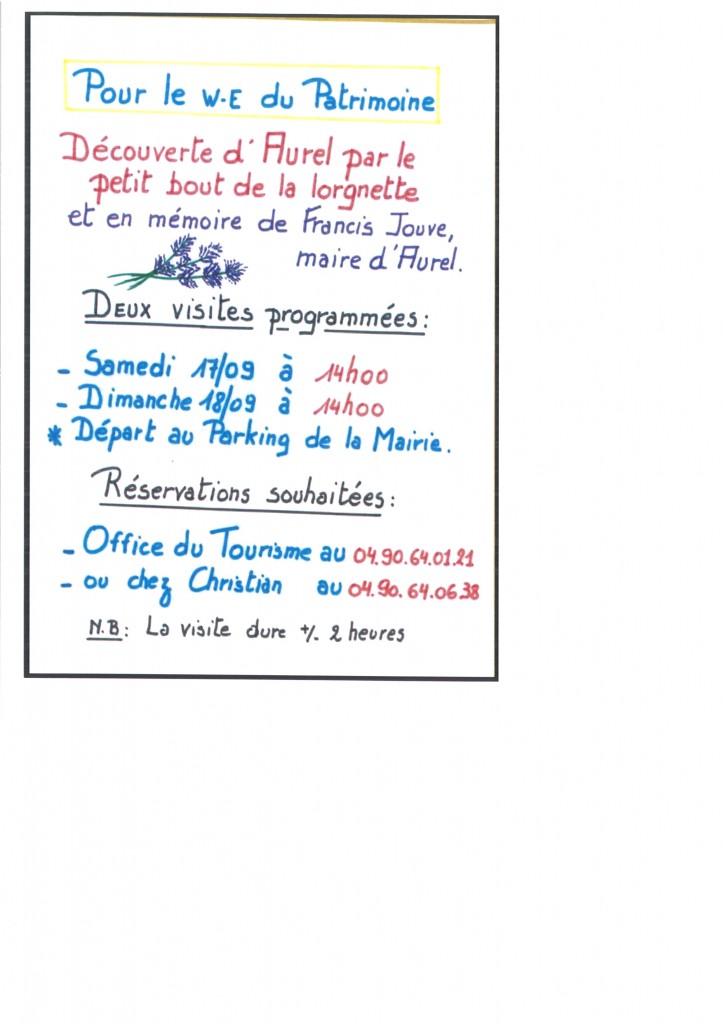 Pour le W-E du Patrimoine
Découverte d'Aurel par le
petit bout de la lorgnette
et en mémoire de Francis Jouve,
maire d'Aurel.
Deux visites programmées :
- Samedi 17/09 à 14h00
- Dimanche 18/09 à 14h00
* Départ au Parking de la Mairie.
Réservations souhaitées :
- Office du Tourisme au 04.90.64.01.21
- ou chez Christian au 04.90.64.06.38
N.B : La visite dure +/- 2 heures